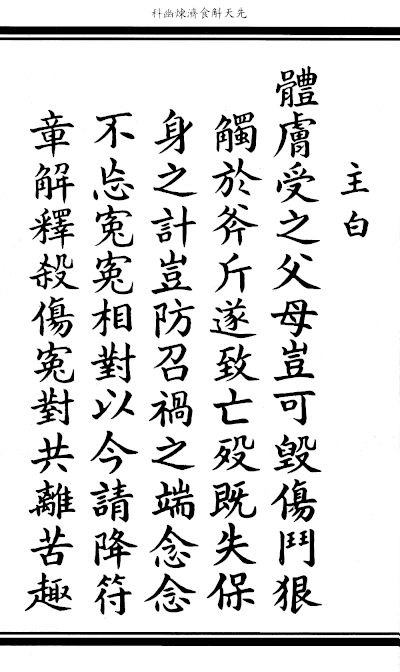 先天斛食濟煉幽科
主白
體膚受之父母豈可毀傷鬥狠
觸於斧斤遂致亡歿既失保
身之計豈防召禍之端念念
不忘寃寃相對以今請降符
章解釋殺傷寃對共離苦趣